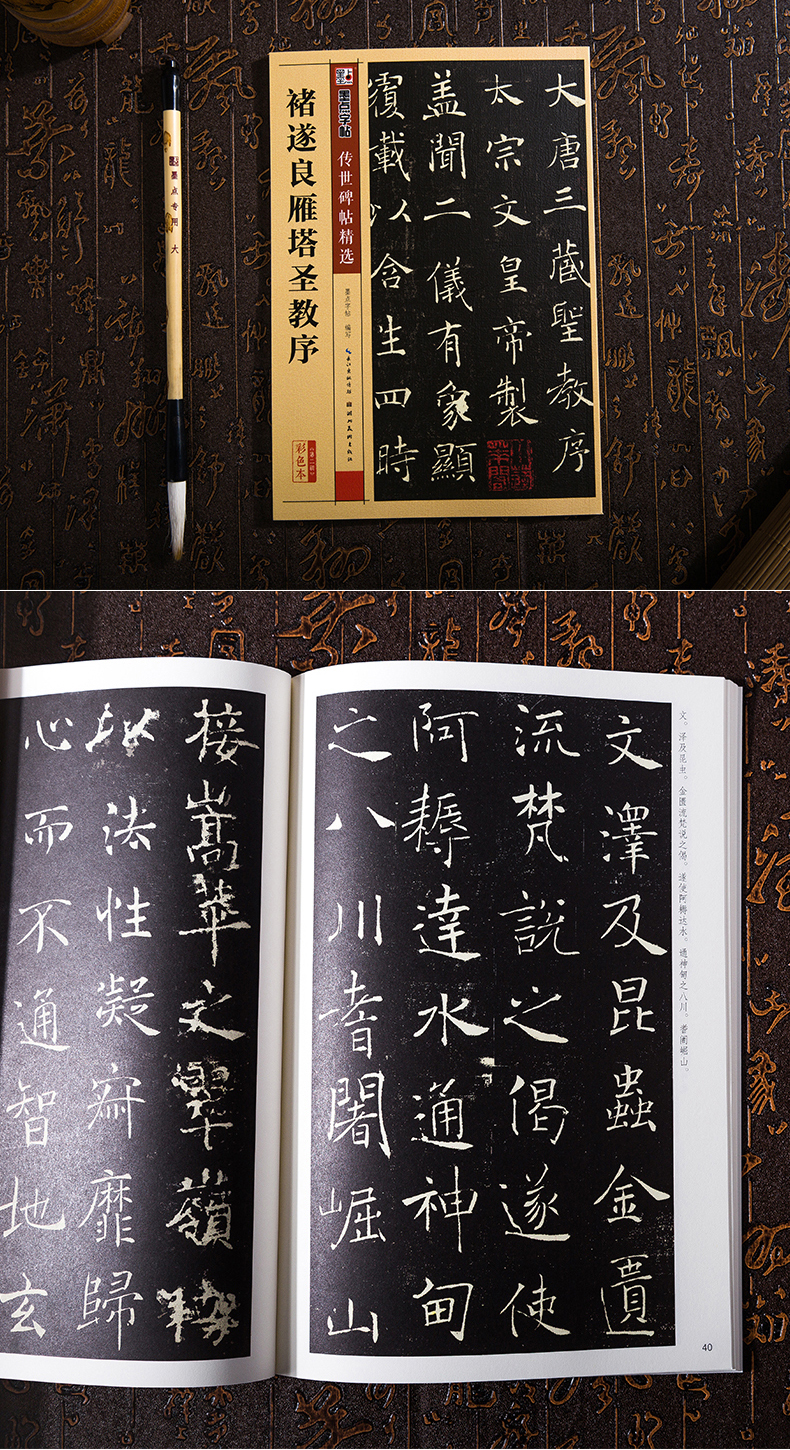 墨点专用 大
褚遂良雁塔圣教序
墨点字帖
传世碑帖精选
墨点字帖 编写
彩色本
(第二辑)
大唐三藏聖教序
太宗文皇帝製
盖聞二儀有象顯
覆載以含生四時
文。泽及昆虫。金匮流梵说之偈。遂使阿耨达水。通神甸之八川。耆阇崛山。
文澤及昆蟲金匱
流梵說之偈遂使
阿耨達水通神甸
之八川耆闍崛山
40
接嵩華之翠嶺
法性凝寂靡歸
心而不通智地玄